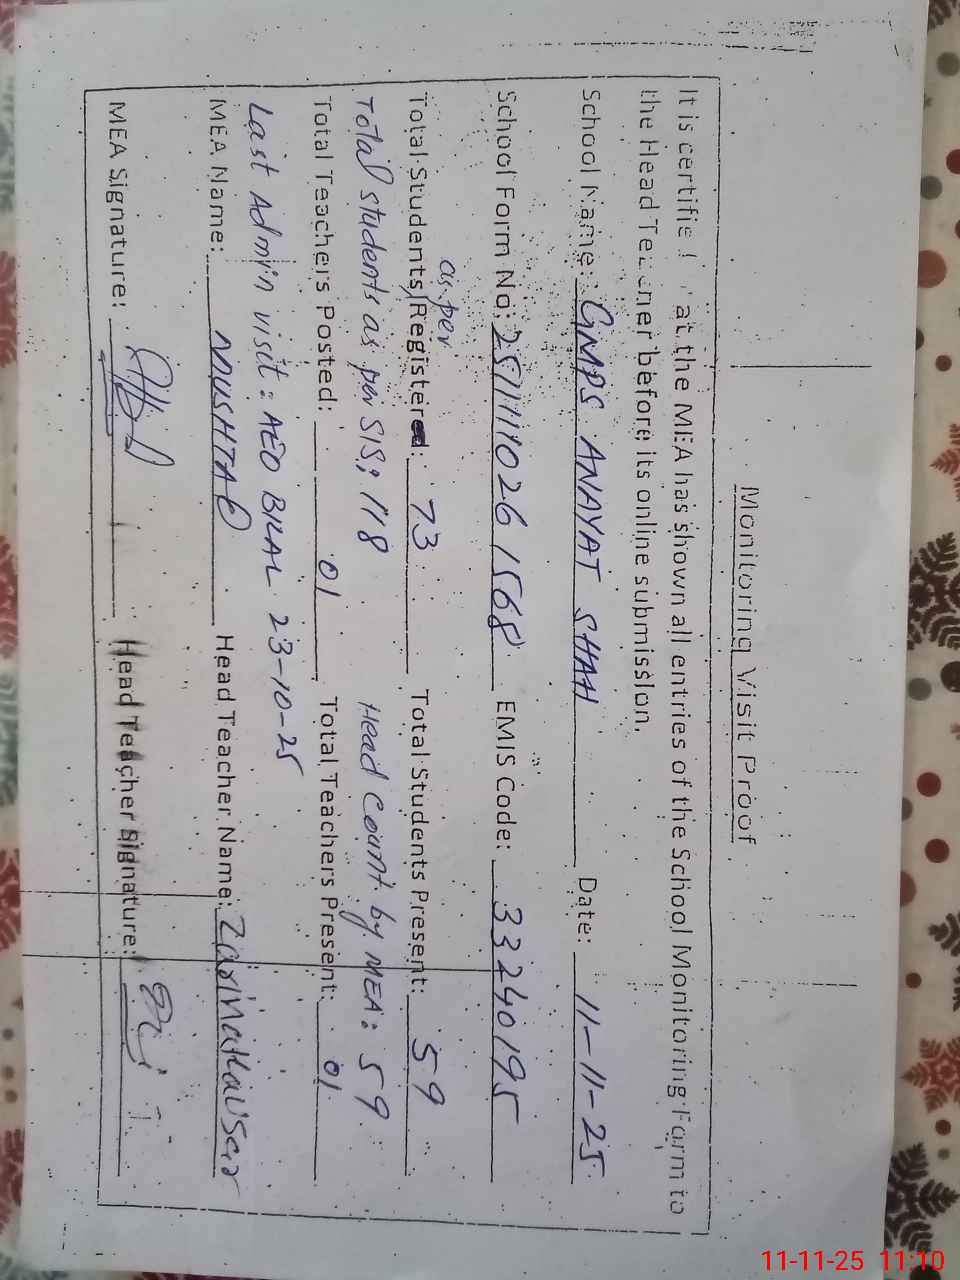 Monitoring Visit Proof
It is certified that the MEA has shown all entries of the School Monitoring Form to
the Head Teacher before its online submission.
School Name: GMPS ANAYAT SHAH Date: 11-11-25
School Form No: EMIS Code: 33240195
as per
Total Students Registered: 73 Total Students Present: 59
Total students as per SIS; 118 Head Count by MEA: 59
Total Teachers Posted: 01 Total Teachers Present: 01
Last Admin visit: AEO BILAL 23-10-25
MEA Name: MUSHTAQ Head Teacher Name:
MEA Signature: Head Teacher Signature:
11-11-25 11:10